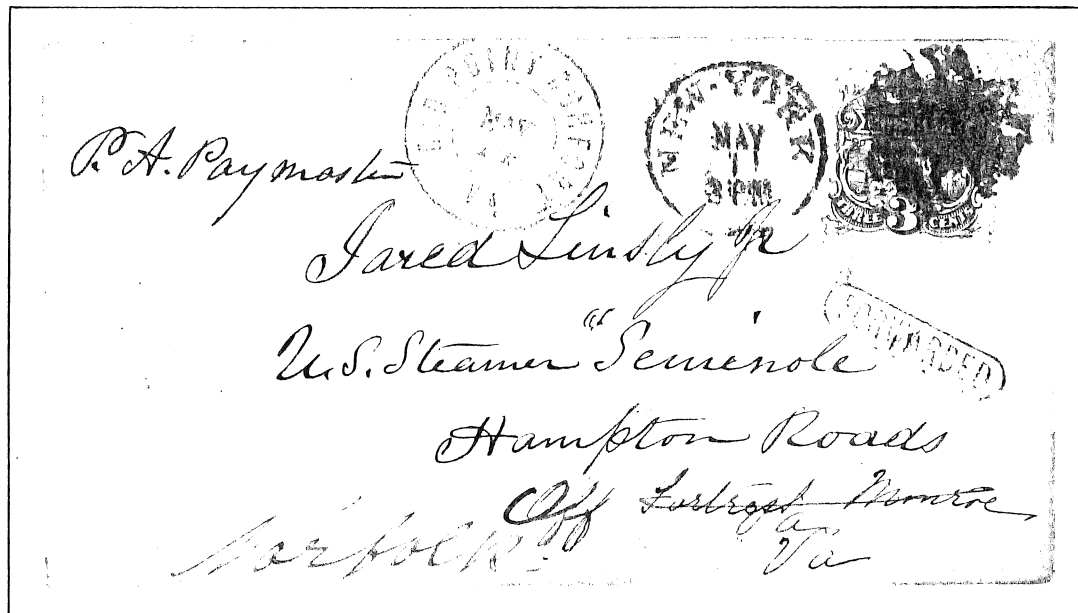 OLD POINT COMFORT
MAY
VA
NEW-YORK
MAY
11
3 PM
THREE 3 CENTS
P. A. Paymaster
Jared Linsly Jr
U.S. Steamer "Seminole
FORWARDED
Hampton Roads
Off Fortress Monroe
Va
Norfolk